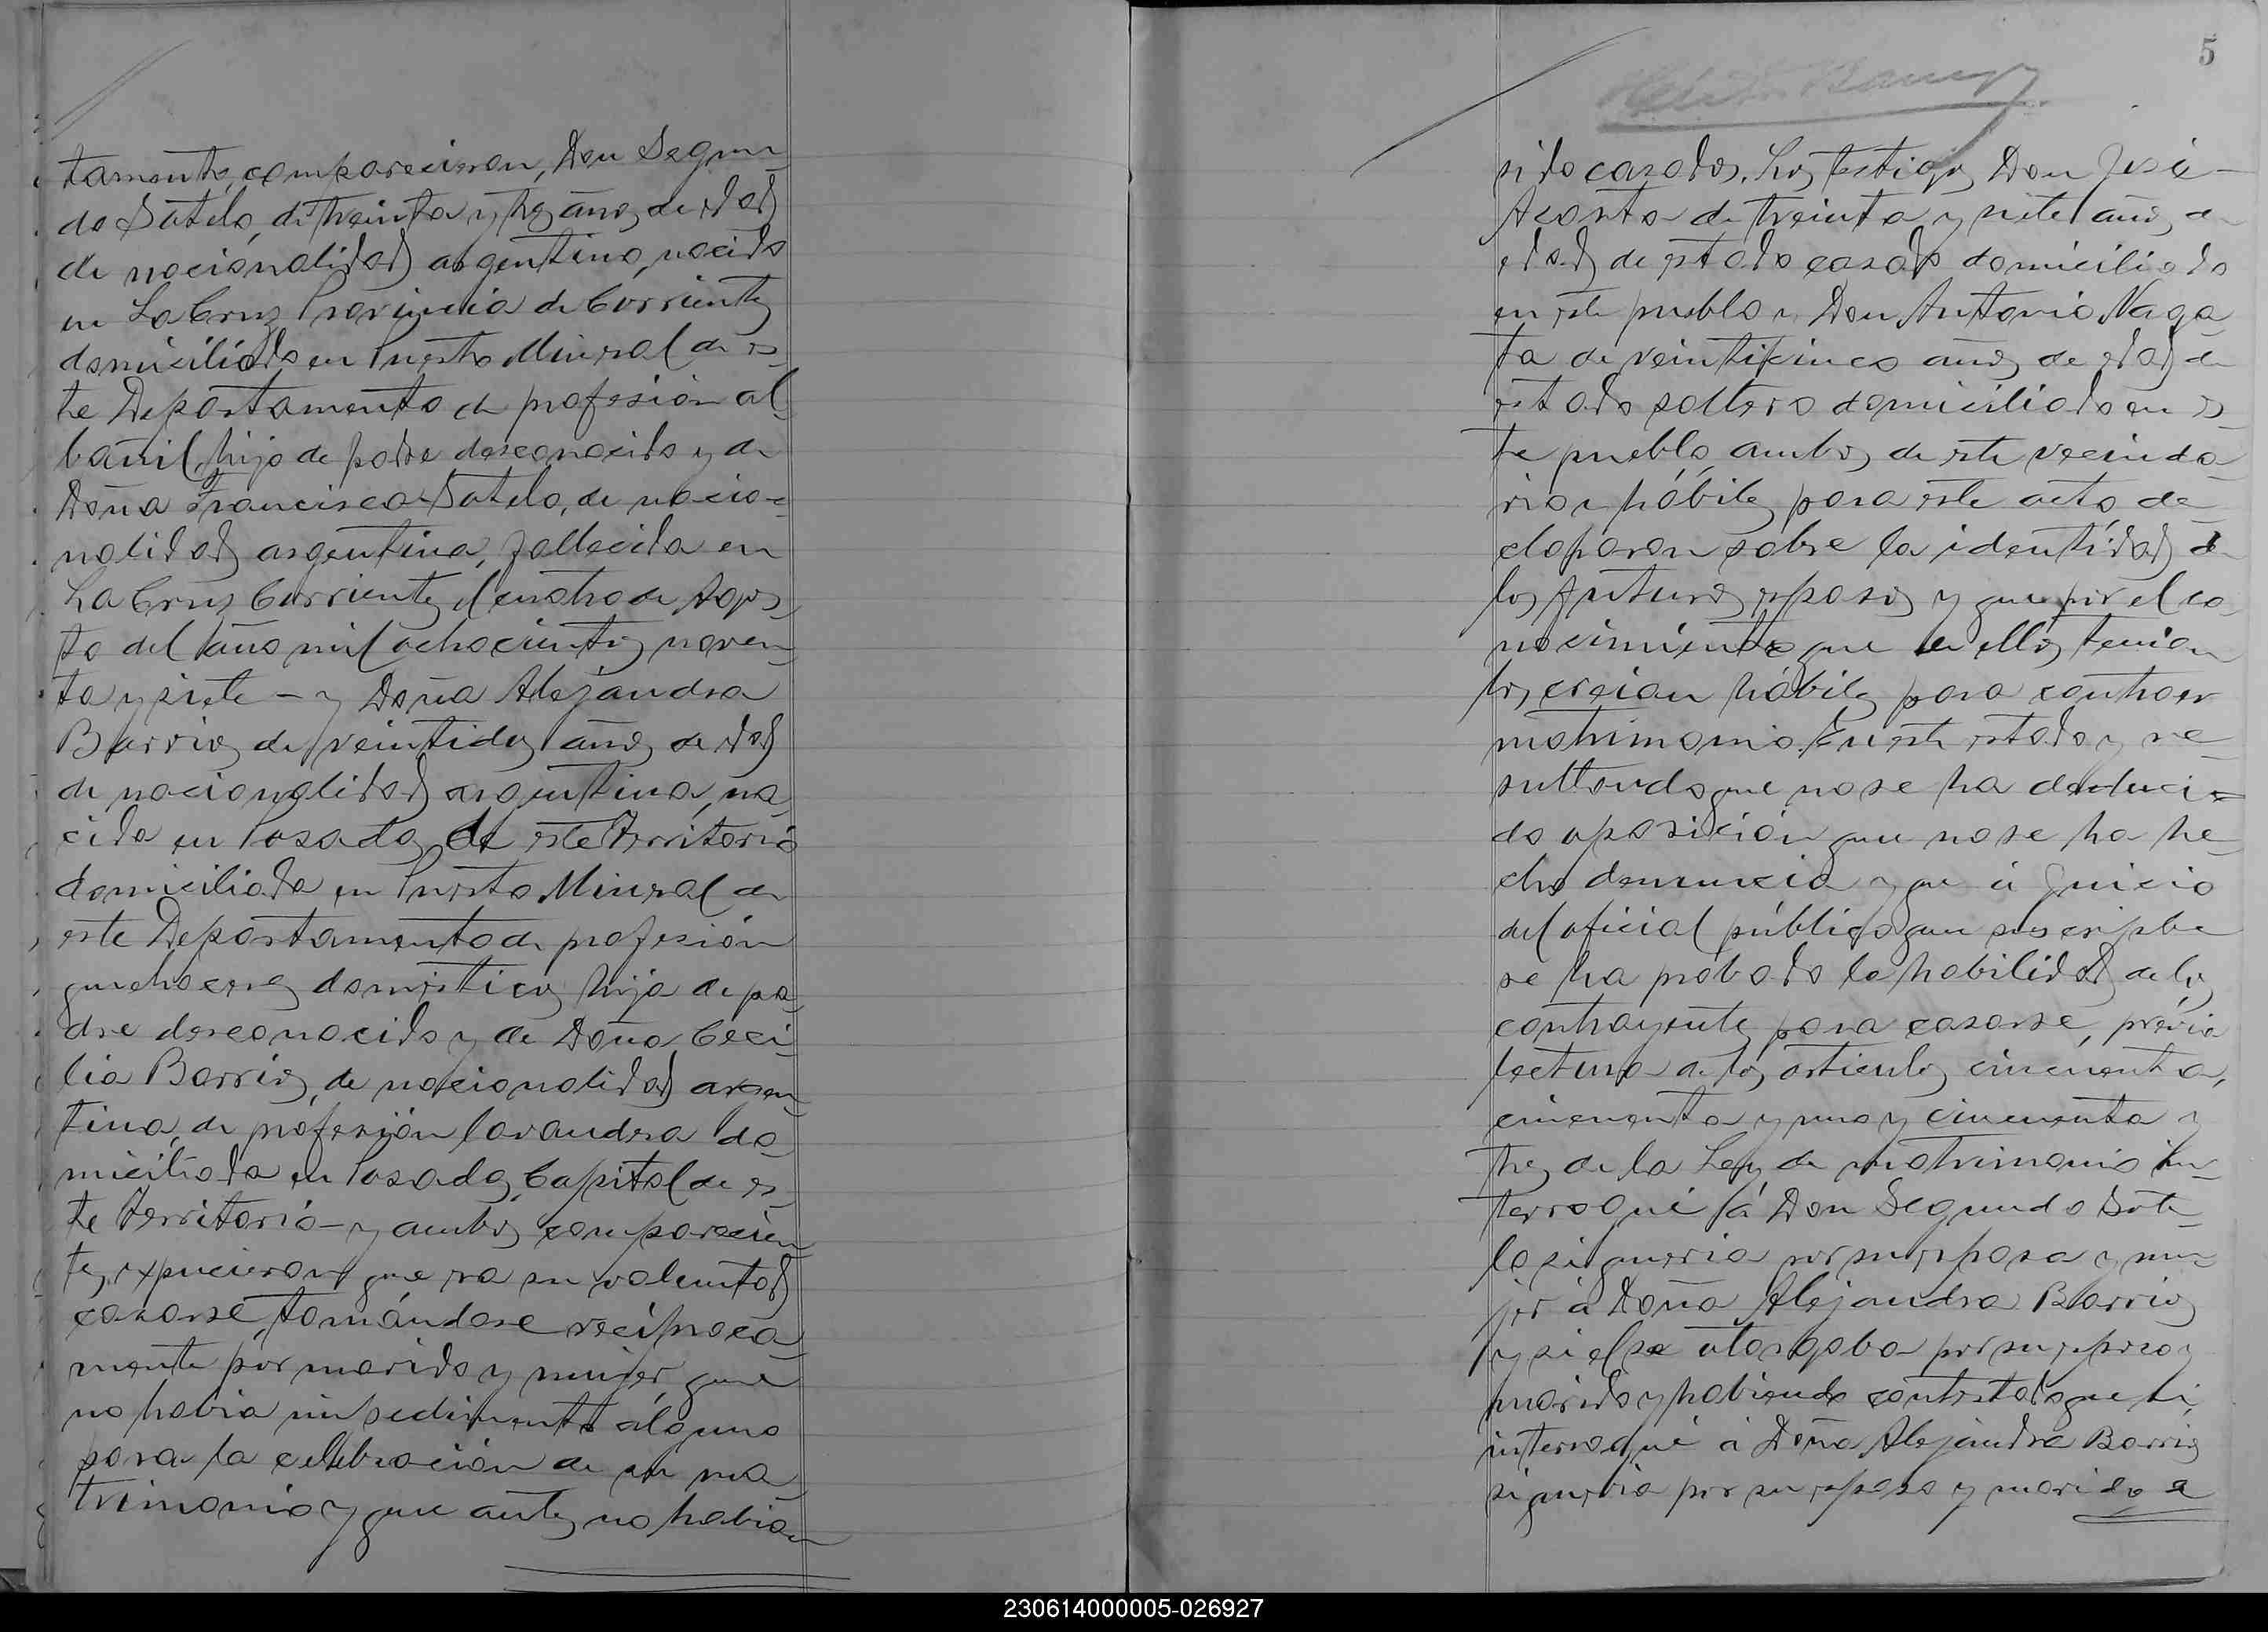 tamente, comparecieron, Don Segun
do Sotelo, de treinta y tres años de edad
de nacionalidad argentino, nacido
en La Cruz Provincia de Corrientes
domiciliado en Puerto Mineral de es-
te Departamento de profesión al-
bañil, hijo de padre desconocido y de
Doña Francisca Sotelo, de nacio-
nalidad argentina, fallecida en
La Cruz Corrientes el cuatro de Agos-
to del año mil ochocientos noven-
ta y siete - y Doña Alejandra
Barrios de veintidos años de edad
de nacionalidad argentina, na-
cida en Posadas de este Territorio
domiciliada en Puerto Mineral de
este Departamento de profesión
quehaceres domésticos hija de pa-
dre desconocido y de Doña Ceci-
lia Barrios, de nacionalidad argen-
tina, de profesión lavandera do-
miciliada en Posadas, Capital de es-
te Territorio - y ambos comparecien-
tes, expucieron que era su voluntad
casarse, tomándose recíproca-
mente por marido y mujer, que
no había impedimento alguno
para la celebración de su ma-
trimonio y que antes no habían
5
sido casados. Los testigos Don José
Acosta de treinta y siete años de
edad, de estado casado domiciliado
en este pueblo y Don Antonio Naga-
ta de veinticinco años de edad de
estado soltero domiciliado en es-
te pueblo, ambos de este vecinda-
rio y hábiles para este acto de-
clararon sobre la identidad de
los futuros esposos y que por el co-
nocimiento que de ellos tenían
los creían hábiles para contraer
matrimonio. En este estado y re-
sultando que no se ha deduci-
do oposición que no se ha he-
cho denuncia y que á juicio
del oficial público que suscribe
se ha probado la habilidad de los
contrayentes para casarse, prévia
lectura de los artículos cincuenta,
cincuenta y uno y cincuenta y
tres de la Ley de matrimonio in-
terrogué á Don Segundo Sote-
lo si quería por su esposa y mu-
jer á Doña Alejandra Barrios
y si el se otorgaba por su esposo y
marido y habiendo contestado que si,
interrogué á Doña Alejandra Barrios
si quería por su esposo y marido a
230614000005-026927